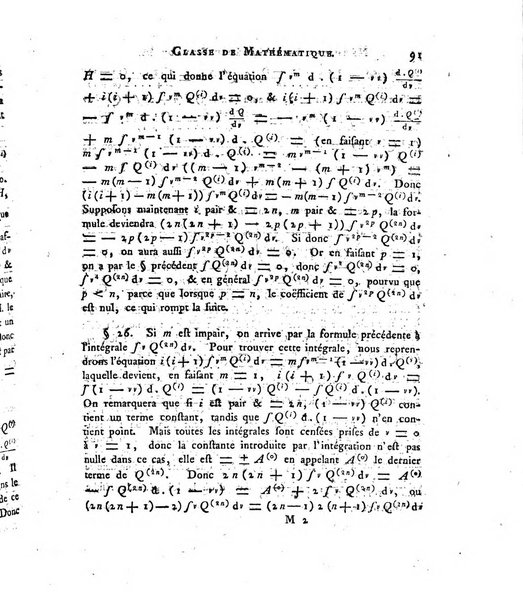 CLASSE DE MATHÉMATIQUE. 91
H = 0, ce qui donne l'équation ∫ν^m d. (1 — νν) d.Q^(i)/dν
+ i(i + 1) ∫ν^m Q^(i) dν = 0, & i(i + 1) ∫ν^m Q^(i) dν =
— ∫ν^m d. (1 — νν) dQ/dν = — ν^m (1 — νν) d.Q^(i)/dν
+ m ∫ν^m—1 (1 — νν) d. Q^(i) = (en faisant ν = 1)
m ∫ν^m—1 (1 — νν) d. Q^(i) = mν^m—1 (1 — νν) Q^(i)
— m∫Q^(i) dν ((m — 1) ν^m—2 — (m + 1) ν^m) =
— m(m — 1) ∫ν^m—2 Q^(i) dν + m(m + 1) ∫ν^m Q^(i) dν. Donc
(i(i + 1) — m(m + 1)) ∫ν^m Q^(i) dν = — m(m — 1) ∫ν^m—2 Q^(i) dν.
Supposons maintenant i pair & = 2n, m pair & = 2p, la for-
mule deviendra (2n(2n + 1) — 2p(2p + 1)) ∫ν^2p Q^(2n) dν
= — 2p(2p — 1) ∫ν^2p—2 Q^(2n) dν. Si donc ∫ν^2p—2 Q^(2n) dν
= 0, on aura aussi ∫ν^2p Q^(2n) dν = 0. Or en faisant p = 1,
on a par le § précédent ∫Q^(2n) dν = 0, donc ∫ν^2 Q^(2n) dν = 0,
donc ∫ν^4 Q^(2n) dν = 0, & en général ∫ν^2p Q^(2n) dν = 0, pourvu que
p < n, parce que lorsque p = n, le coëfficient de ∫ν^2p Q^(2n) dν
est nul, ce qui rompt la suite.
§ 26. Si m est impair, on arrive par la formule précédente à
l'intégrale ∫ν Q^(2n) dν. Pour trouver cette intégrale, nous repren-
drons l'équation i(i + 1) ∫ν^m Q^(i) dν = m∫ν^m—1 (1 — νν) d. Q^(i),
laquelle devient, en faisant m = 1, i (i + 1) ∫ν Q^(i) dν =
∫(1 — νν) d. Q^(i) = (1 — νν) Q^(i) — ∫Q^(i) d. (1 — νν).
On remarquera que si i est pair & = 2n, (1 — νν) Q^(i) con-
tient un terme constant, tandis que ∫Q^(i) d (1 — νν) n'en con-
tient point. Mais toutes les intégrales sont censées prises de ν = 0
à ν = 1, donc la constante introduite par l'intégration n'est pas
nulle dans ce cas, elle est = ± A^(0) en appelant A^(0) le dernier
terme de Q^(2n). Donc 2n (2n + 1) ∫ν Q^(2n) dν = A^(0)
— ∫Q^(2n) d. (1 — νν) = A^(0) + 2 ∫ν Q^(2n) dν, ou
(2n (2n + 1) — 2) ∫ν Q^(2n) dν = (2n — 1) 2 (n + 1) ∫ν Q^(2n) dν
M 2